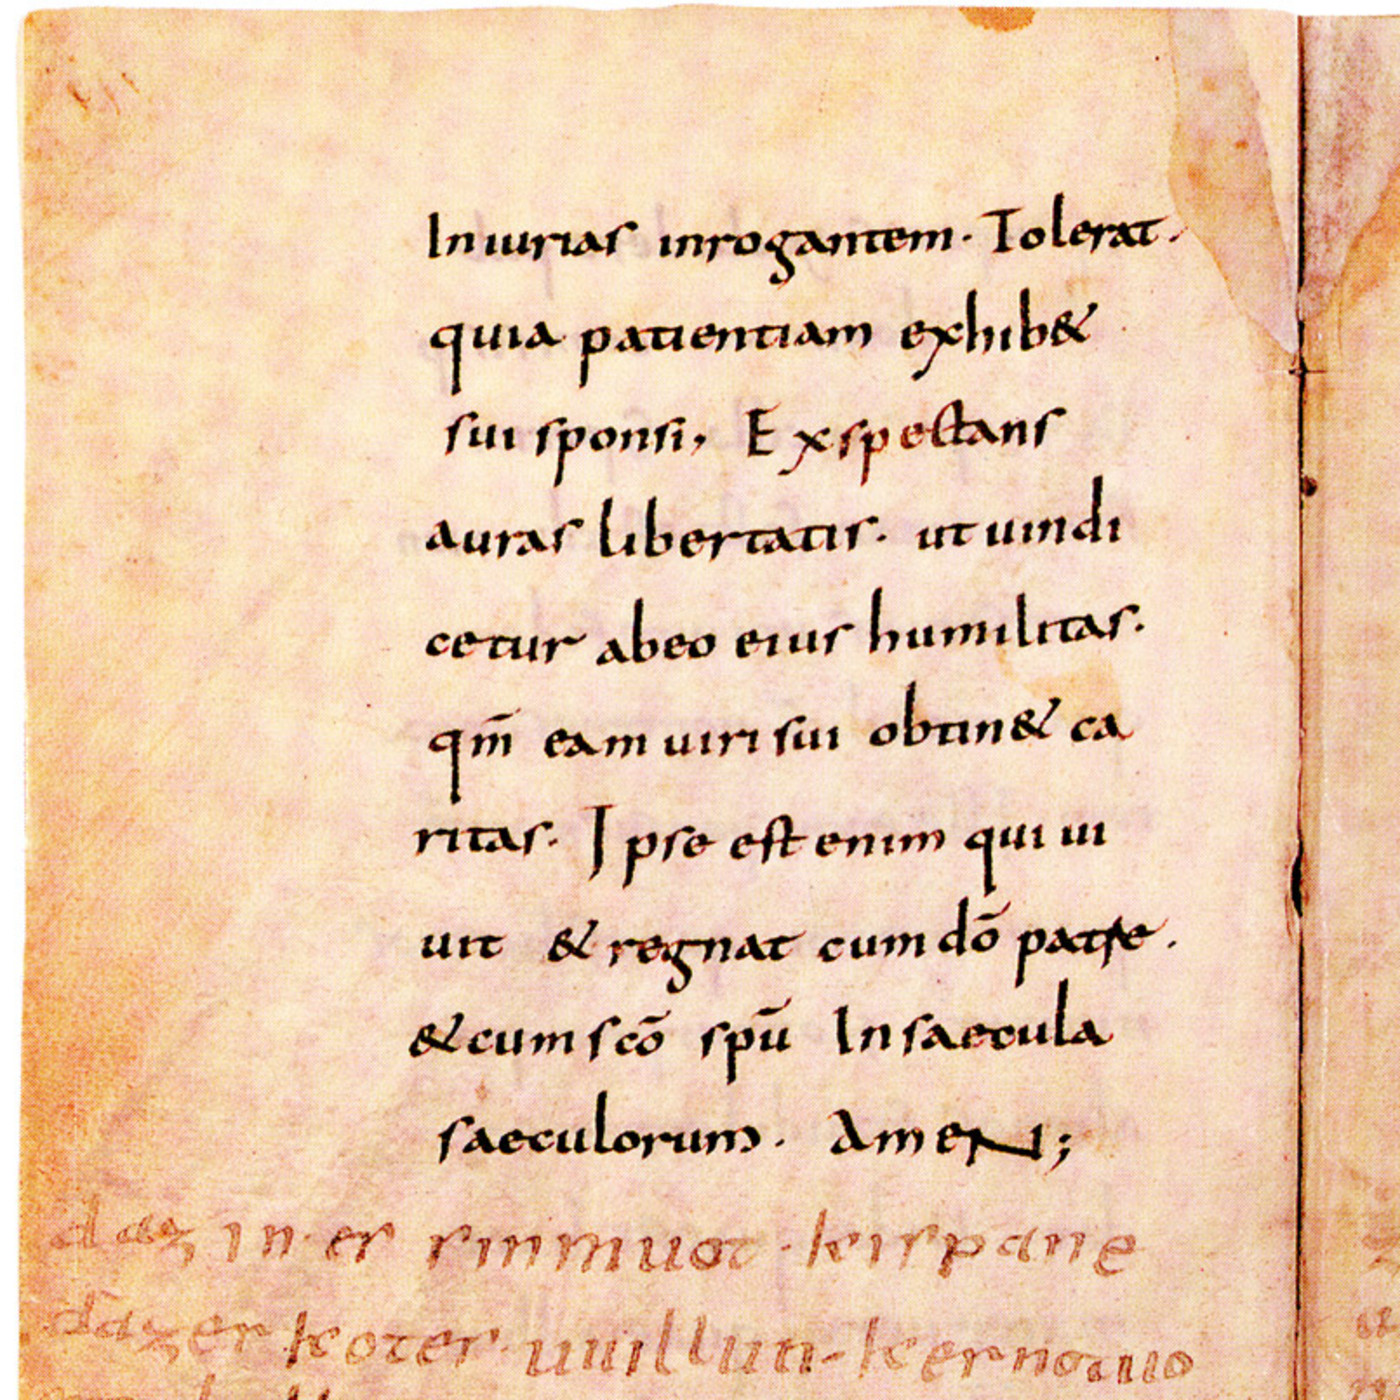 Iniurias inrogantem. Tolerat.
quia patientiam exhib&
sui sponsi, Exspectans
auras libertatis. ut uindi
cetur abeo eius humilitas.
qm̄ eam uiri sui obtin& ca
ritas. Ipse est enim qui ui
uit & regnat cum dō patre.
& cum scō spū In saecula
saeculorum. AmeN;
daz in er sinmuot . kispane
daz er kotes. uuilluн- kernotuo